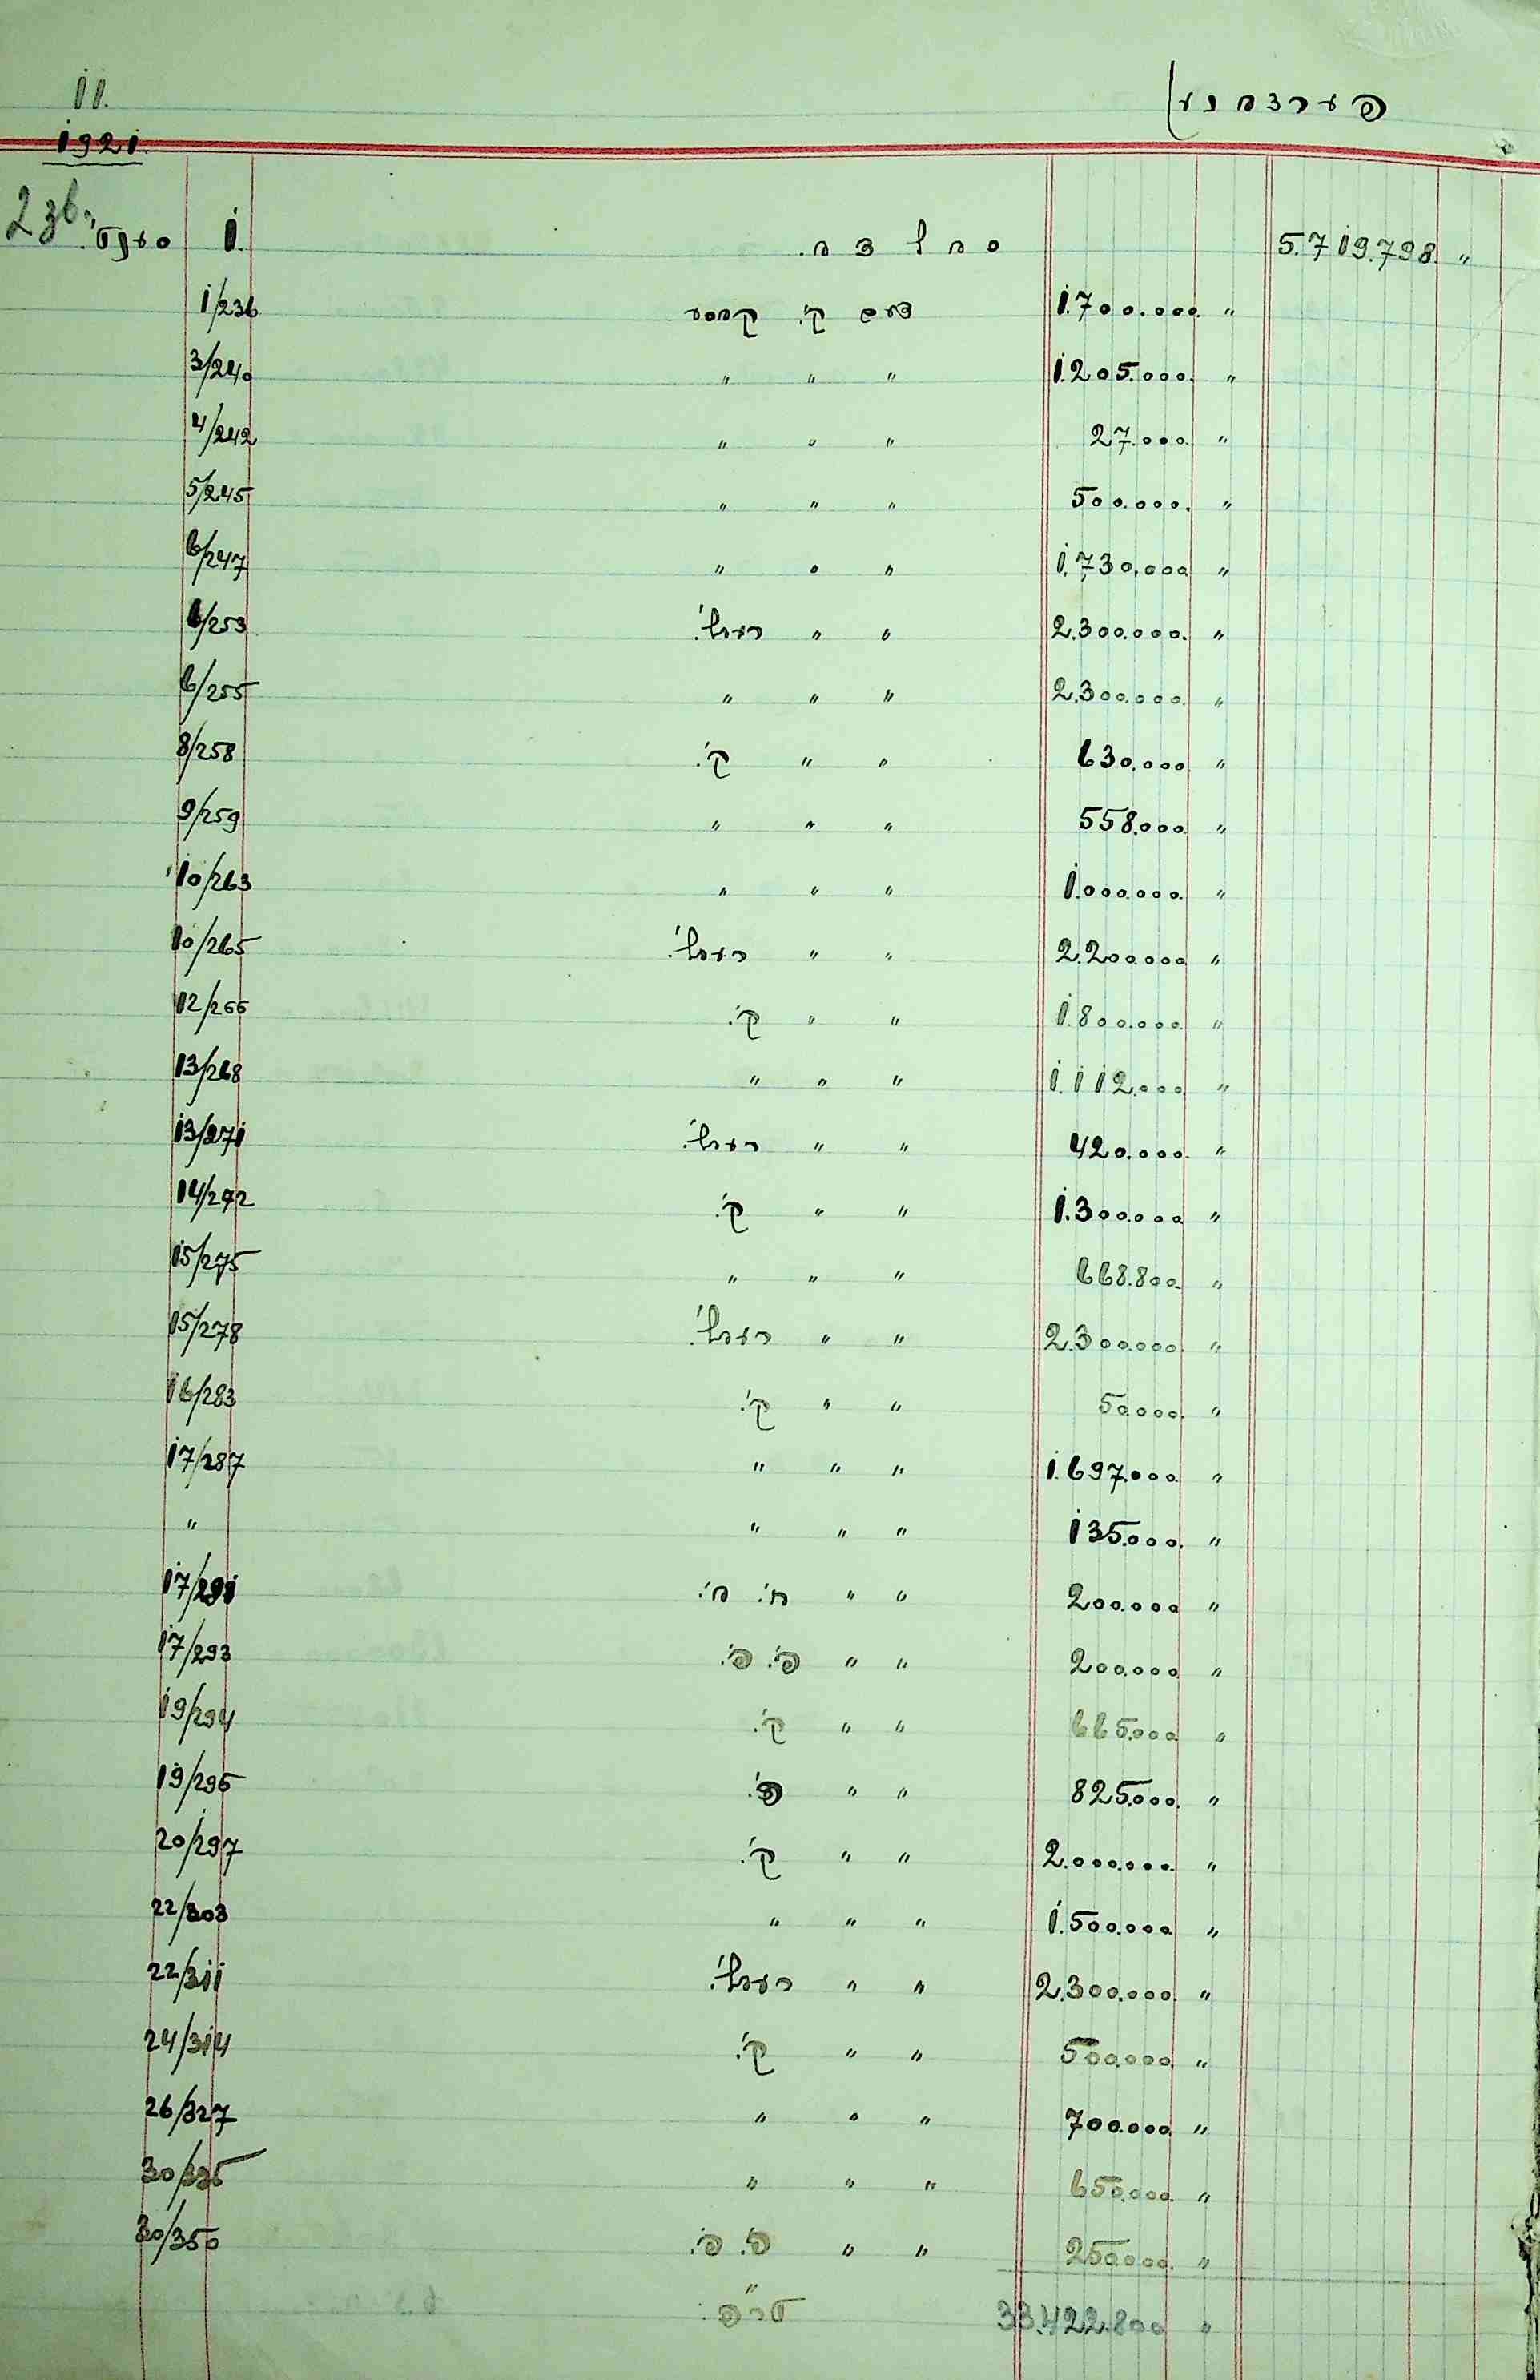 11.
1921.
סעפט׳. 1. סאלדא. 5.719.798 "
1/236 דעפ ק׳. קאסע 1.700.000. "
3/240 " " " 1.205.000. "
4/242 " " " 27.000 "
5/245 " " " 500.000. "
6/247 " " " 1.730.000 "
6/253 " " 2.300.000. "
6/255 " " " 2.300.000. "
8/258 " " ק׳. 630.000 "
9/259 " " " 558.000 "
10/263 " " " 1.000.000. "
10/265 " " 2.200.000 "
12/266 " " ק׳. 1.800.000. "
13/268 " " " 1.112.000 "
13/271 " " 420.000. "
14/272 " " ק׳. 1.300.000 "
15/275 " " " 668.800 "
15/278 " " 2.300.000. "
16/283 " " ק׳. 50.000. "
17/287 " " " 1.697.000 "
" " " " 135.000. "
17/291 " " א׳. א׳. 200.000 "
17/293 " " פ׳. פ׳. 200.000. "
19/294 " " ק׳. 665.000 "
19/295 " " פ׳. 825.000. "
20/297 " " ק׳. 2.000.000. "
22/303 " " " 1.500.000 "
22/311 " " 2.300.000. "
24/314 " " ק׳. 500.000. "
26/327 " " " 700.000. "
30/335 " " " 650.000. "
30/350 " " פ׳. פ׳. 250.000. "
טר״פ. 33.422.800 "